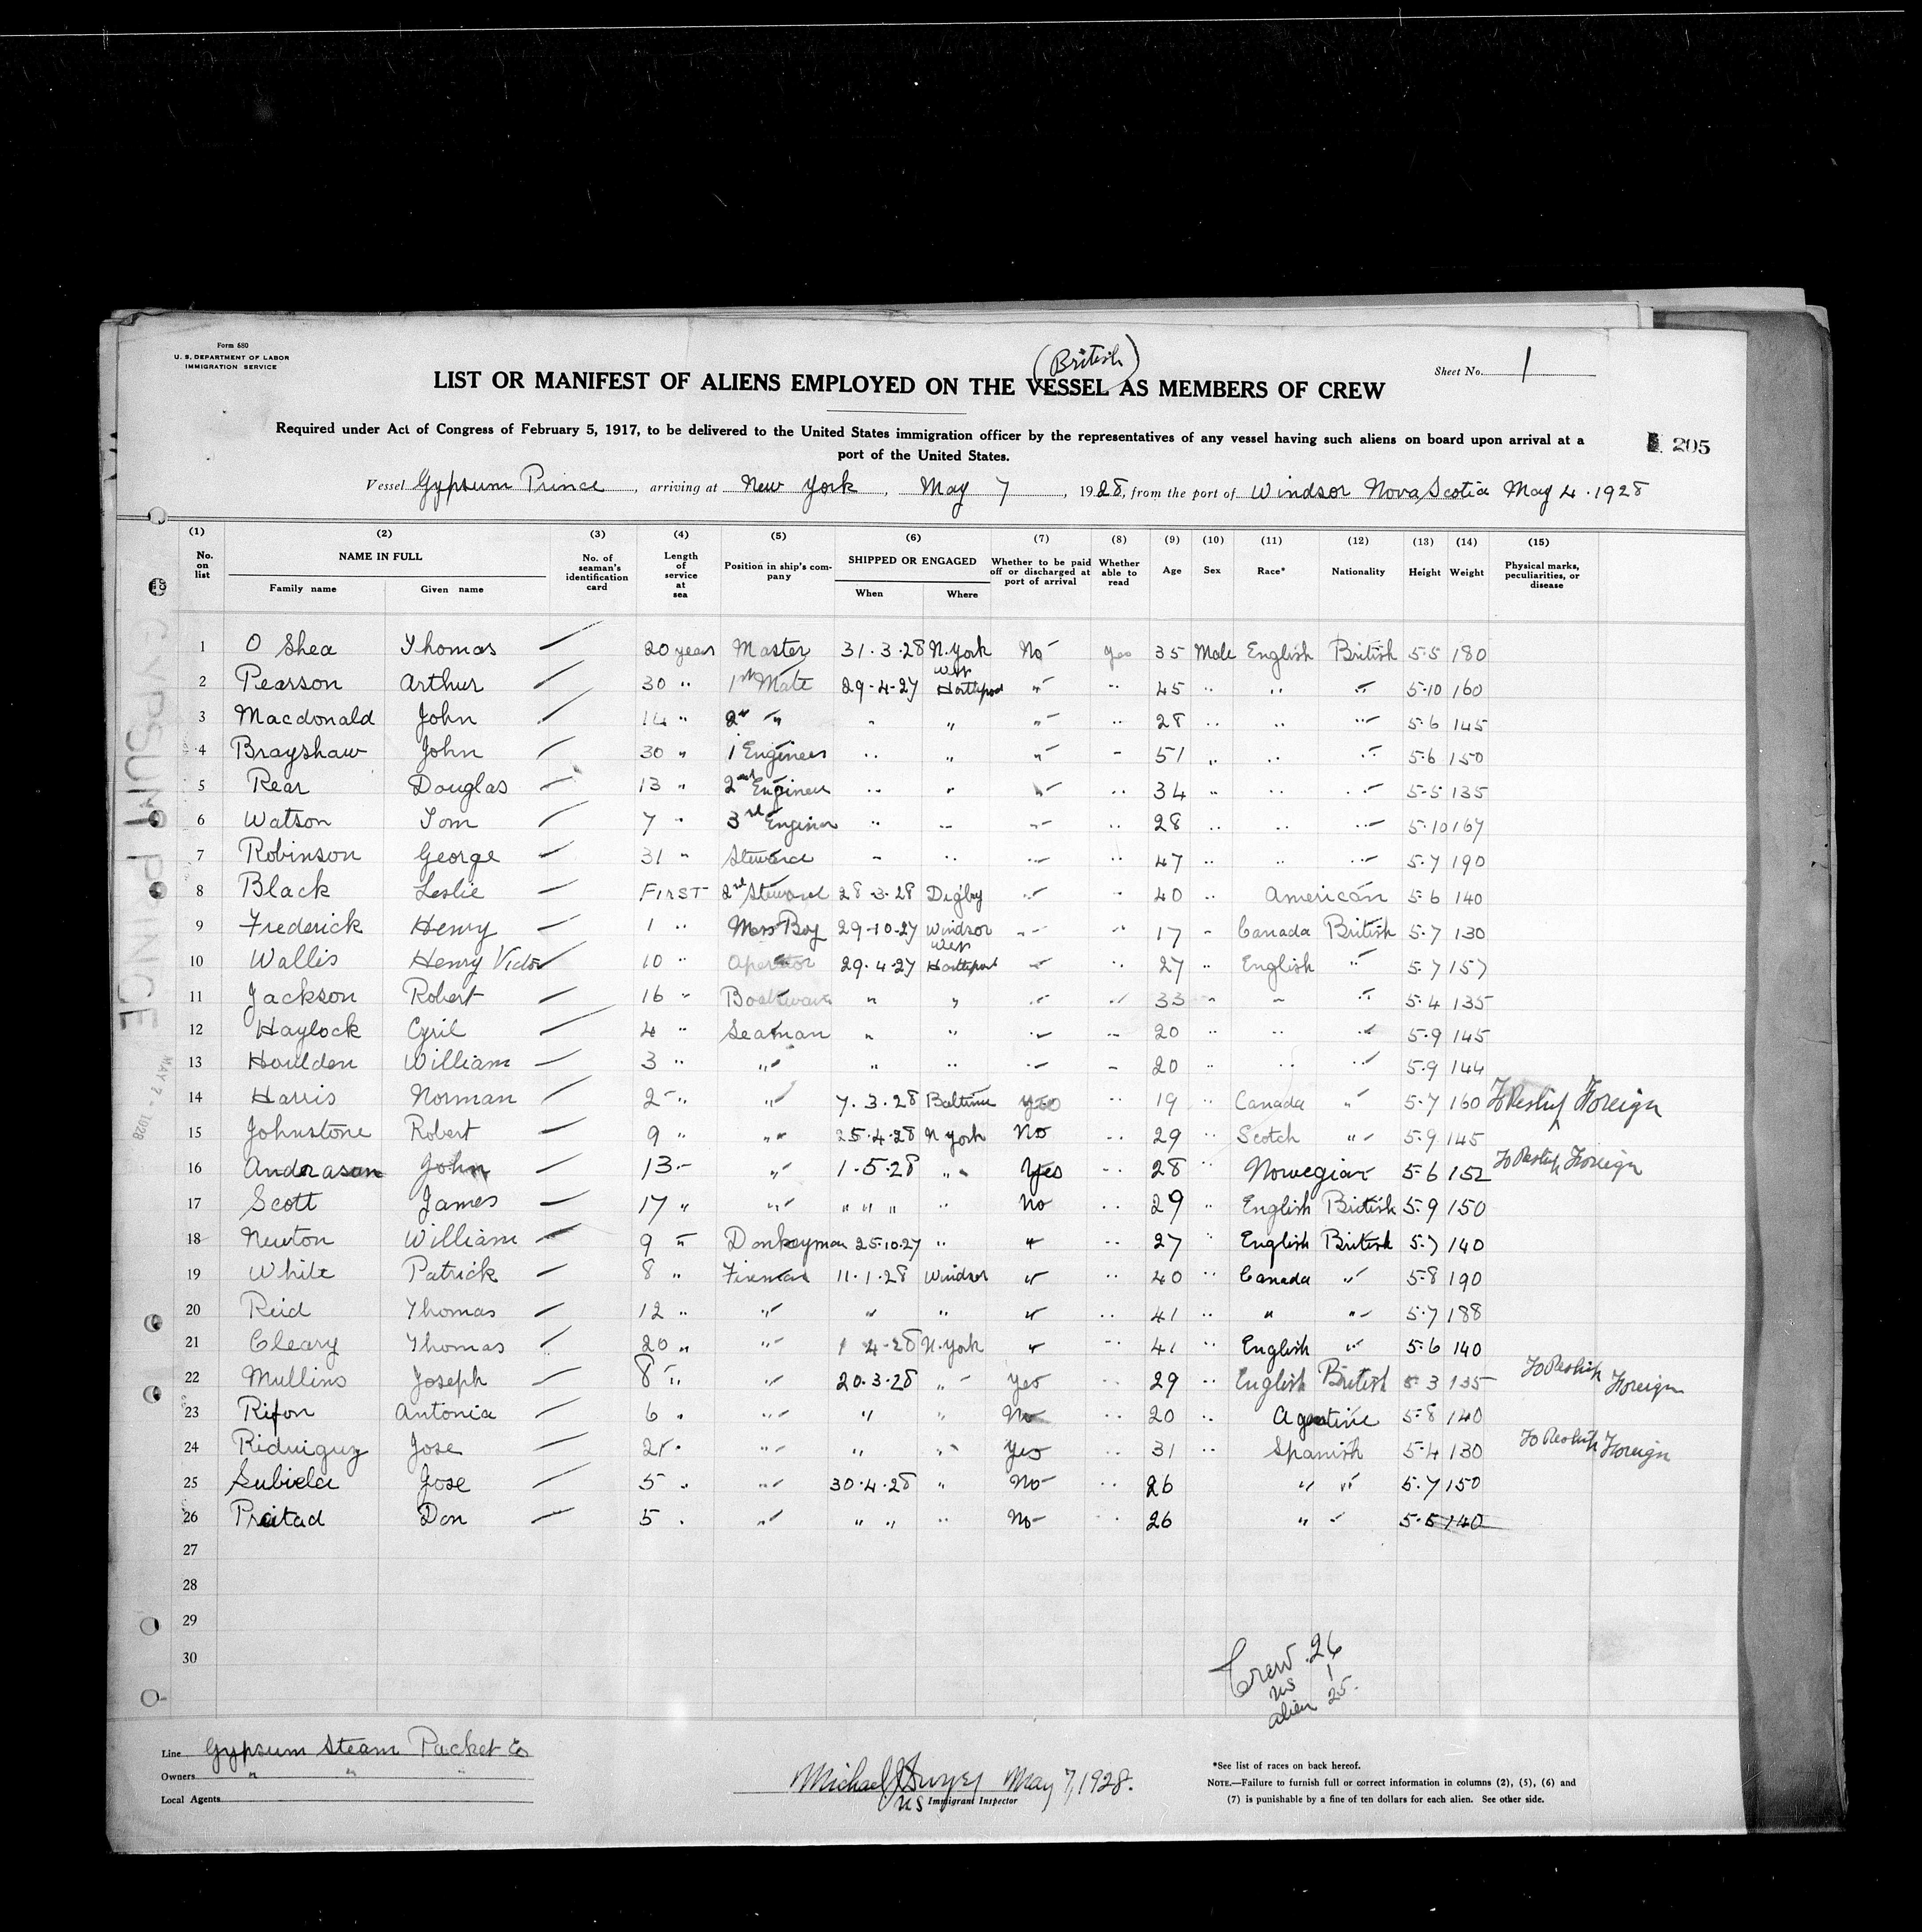 Form 680
U. S. DEPARTMENT OF LABOR
IMMIGRATION SERVICE
(British)
Sheet No. 1
LIST OR MANIFEST OF ALIENS EMPLOYED ON THE VESSEL AS MEMBERS OF CREW
Required under Act of Congress of February 5, 1917, to be delivered to the United States immigration officer by the representatives of any vessel having such aliens on board upon arrival at a
port of the United States.
205
Vessel Gypsum Prince, arriving at New York, May 7, 1928, from the port of Windsor Nova Scotia May 4. 1928
(1) (2) (3) (4) (5) (6) (7) (8) (9) (10) (11) (12) (13) (14) (15)
No. on list NAME IN FULL Family name Given name No. of seaman's identification card Length of service at sea Position in ship's company SHIPPED OR ENGAGED When Where Whether to be paid off or discharged at port of arrival Whether able to read Age Sex Race* Nationality Height Weight Physical marks, peculiarities, or disease
1 O Shea Thomas 20 years Master 31.3.28 N. York No Yes 35 Male English British 5-5 180
2 Pearson Arthur 30 " 1st Mate 29-4-27 West " " 45 " " " 5-10 160
3 Macdonald John 14 " 2nd " " " " " 28 " " " 5-6 145
4 Brayshaw John 30 " 1 Engineer " " " " 51 " " " 5-6 150
5 Rear Douglas 13 " 2nd Engineer " " " " 34 " " " 5-5 135
6 Watson Tom 7 " 3rd Engineer " " " " 28 " " " 5-10 167
7 Robinson George 31 " Steward " " " " 47 " " " 5-7 190
8 Black Leslie FIRST 2nd Steward 28-3-28 Digby " " 40 " American 5-6 140
9 Frederick Henry 1 " Mess Boy 29-10-27 Windsor " " 17 " Canada British 5-7 130
10 Wallis Henry Victor 10 " Operator 29.4.27 West " " 27 " English " 5-7 157
11 Jackson Robert 16 " " " " " 33 " " " 5-4 135
12 Haylock Cyril 4 " Seaman " " " " 20 " " " 5-9 145
13 Houlden William 3 " " " " " " 20 " " " 5-9 144
14 Harris Norman 2 " " 7.3.28 Yes " 19 " Canada " 5-7 160 To Reship Foreign
15 Johnstone Robert 9 " " 25.4.28 N York No " 29 " Scotch " 5-9 145
16 John 13 " 1.5.28 " Yes " 28 " Norwegian 5-6 152 To Reship Foreign
17 Scott James 17 " " " " " " No " 29 " English British 5-9 150
18 Newton William 9 " Donkeyman 25.10.27 " " " 27 " English British 5-7 140
19 White Patrick 8 " Fireman 11.1.28 Windsor " " 40 " Canada " 5-8 190
20 Reid Thomas 12 " " " " " " 41 " " " 5-7 188
21 Cleary Thomas 20 " " 1 4-28 N. York " " 41 " English " 5-6 140
22 Mullins Joseph 8 " " 20.3.28 " Yes " 29 " English British 5-3 135 To Reship Foreign
23 Rifon Antonia 6 " " " " No " 20 " 5-8 140
24 Jose " " " Yes " 31 " Spanish 5-4 130 To Reship Foreign
25 Subiela Jose 5 " " 30.4.28 " No " 26 " " 5-7 150
26 Don 5 " " " " " No " 26 " " 5-5 140
27
28
29
30
Crew 26
US 1
alien 25.
GYPSUM PRINCE
MAY 7 - 1928
Line Gypsum Steam Packet Co
Owners " " "
Local Agents
Michael May 7, 1928.
US Immigrant Inspector
*See list of races on back hereof.
NOTE.—Failure to furnish full or correct information in columns (2), (5), (6) and
(7) is punishable by a fine of ten dollars for each alien. See other side.